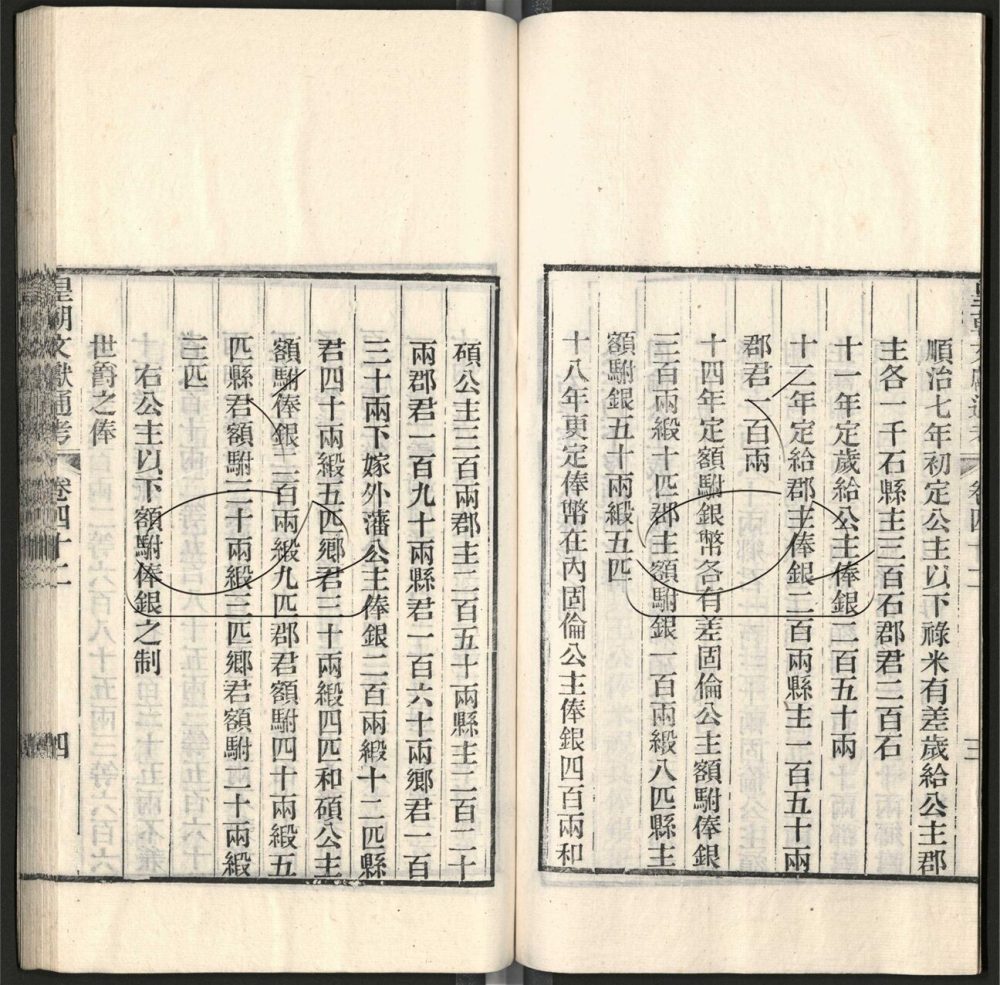 皇朝文獻通考 卷四十二 三
順治七年初定公主以下祿米有差歲給公主郡
主各一千石縣主三百石郡君二百石
十一年定歲給公主俸銀二百五十兩
十二年定給郡主俸銀二百兩縣主一百五十兩
郡君一百兩
十四年定額駙銀幣各有差固倫公主額駙俸銀
三百兩緞十匹郡主額駙銀一百兩緞八匹縣主
額駙銀五十兩緞五匹
十八年更定俸幣在內固倫公主俸銀四百兩和
碩公主三百兩郡主二百五十兩縣主二百二十
兩郡君一百九十兩縣君一百六十兩鄉君一百
三十兩下嫁外藩公主俸銀二百兩緞十二匹縣
君四十兩緞五匹鄉君三十兩緞四匹和碩公主
額駙俸銀二百兩緞九匹郡君額駙四十兩緞五
匹縣君額駙三十兩緞三匹鄉君額駙二十兩緞
三匹
右公主以下額駙俸銀之制
世爵之俸
皇朝文獻通考 卷四十二 四